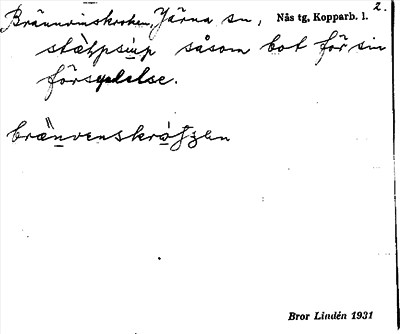 2.
Brännvinskroken, Järna sn, Nås tg, Kopparb. l.
såsom bot för sin
förseelse.
Bror Lindén 1931